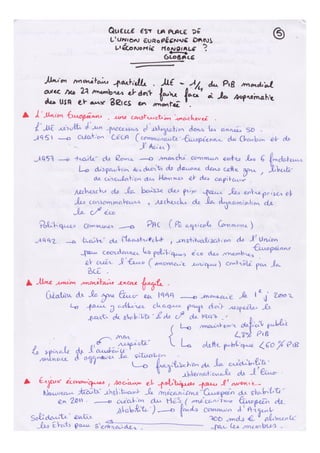 QUELLE EST LA PLACE DE
L'UNION EUROPÉENNE DANS
L'ÉCONOMIE MONDIALE ?
GLOBALE
5
Union monétaire partielle. UE = 1/4 du PIB mondial
avec ses 27 membres et doit faire face à la suprématie
des USA et aux BRICS en montée.
L'Union Européenne, une construction inachevée.
L'UE résulte d'un processus d'intégration dans les années 50.
1951 → création CECA (communauté Européenne du Charbon et de
l'Acier)
1957 → traité de Rome → marché commun entre les 6 fondateurs
↳ disparition des droits de douane dans cette zone, liberté
de circulation des Hommes et des capitaux
recherche de la baisse des prix pour les entreprises et
les consommateurs, recherche de la dynamisation de
la c° éco
Politiques communes → PAC (Po agricole Commune)
1992 → traité de Maastricht, institualisation de l'Union
Européenne
pour coordonner les politiques éco des membres
et créer l'Euro (monnaie unique) contrôlé par la
BCE.
Une union monétaire encore fragile.
Création de la zone Euro en 1999 → monnaie le 1er j 2002
↳ pour y adhérer chaque pays doit respecter le
pacte de stabilité & de c° de 1997.
↳ maintenir déficit public
<3% PIB
↳ dette publique <60% PIB
non
respecté
la spirale de l'austérité
menace d'aggraver la situation
↳ fragilisation de la crédibilité
internationale de l'Euro.
Enjeux économiques, sociaux et politiques pour l'avenir.
Nouveau traité instituant le mécanisme Européen de stabilité
en 2011 → création du MES (mécanisme Européen de
stabilité) → fonds commun d'Argent
Solidarité entre
les États pour s'entraider.
700 mds € alimenté
par les membres.